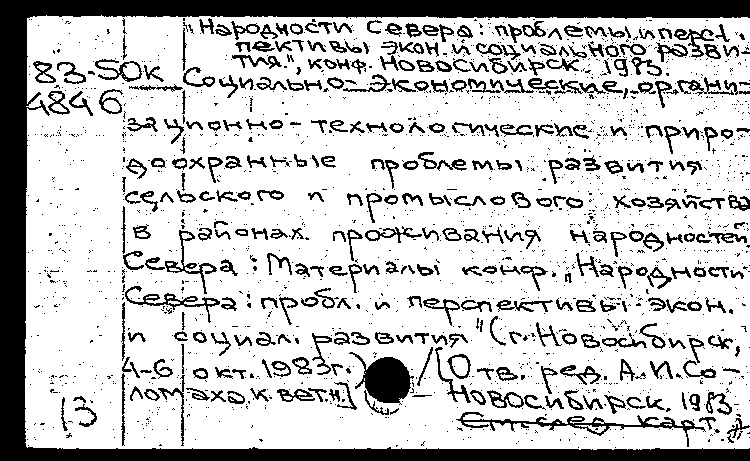 "Народности Севера: проблемы и перс-
пективы экон. и социального разви-
тия", конф. Новосибирск. 1983.
83-50к
4846
Социально-экономические, органи-
зационно-технологические и приро-
доохранные проблемы развития
сельского и промыслового хозяйства
в районах проживания народностей
Севера: Материалы конф. „Народности
Севера: пробл. и перспективы экон.
и социал. развития" (г. Новосибирск,
4-6 окт. 1983г.) / [Отв. ред. А.И.Со-
ломаха, к. вет. н.] – Новосибирск. 1983
См. след. карт.
13